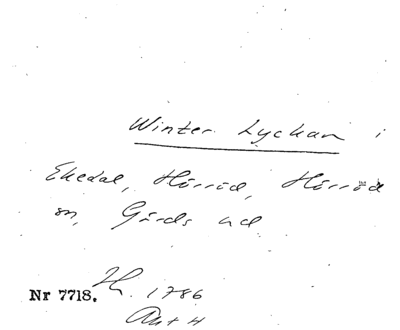 Winter Lyckan i
Ekedal, Hörröd, Hörröd
sn, Gärds hd
Nr 7718. H. 1786
Akt 4